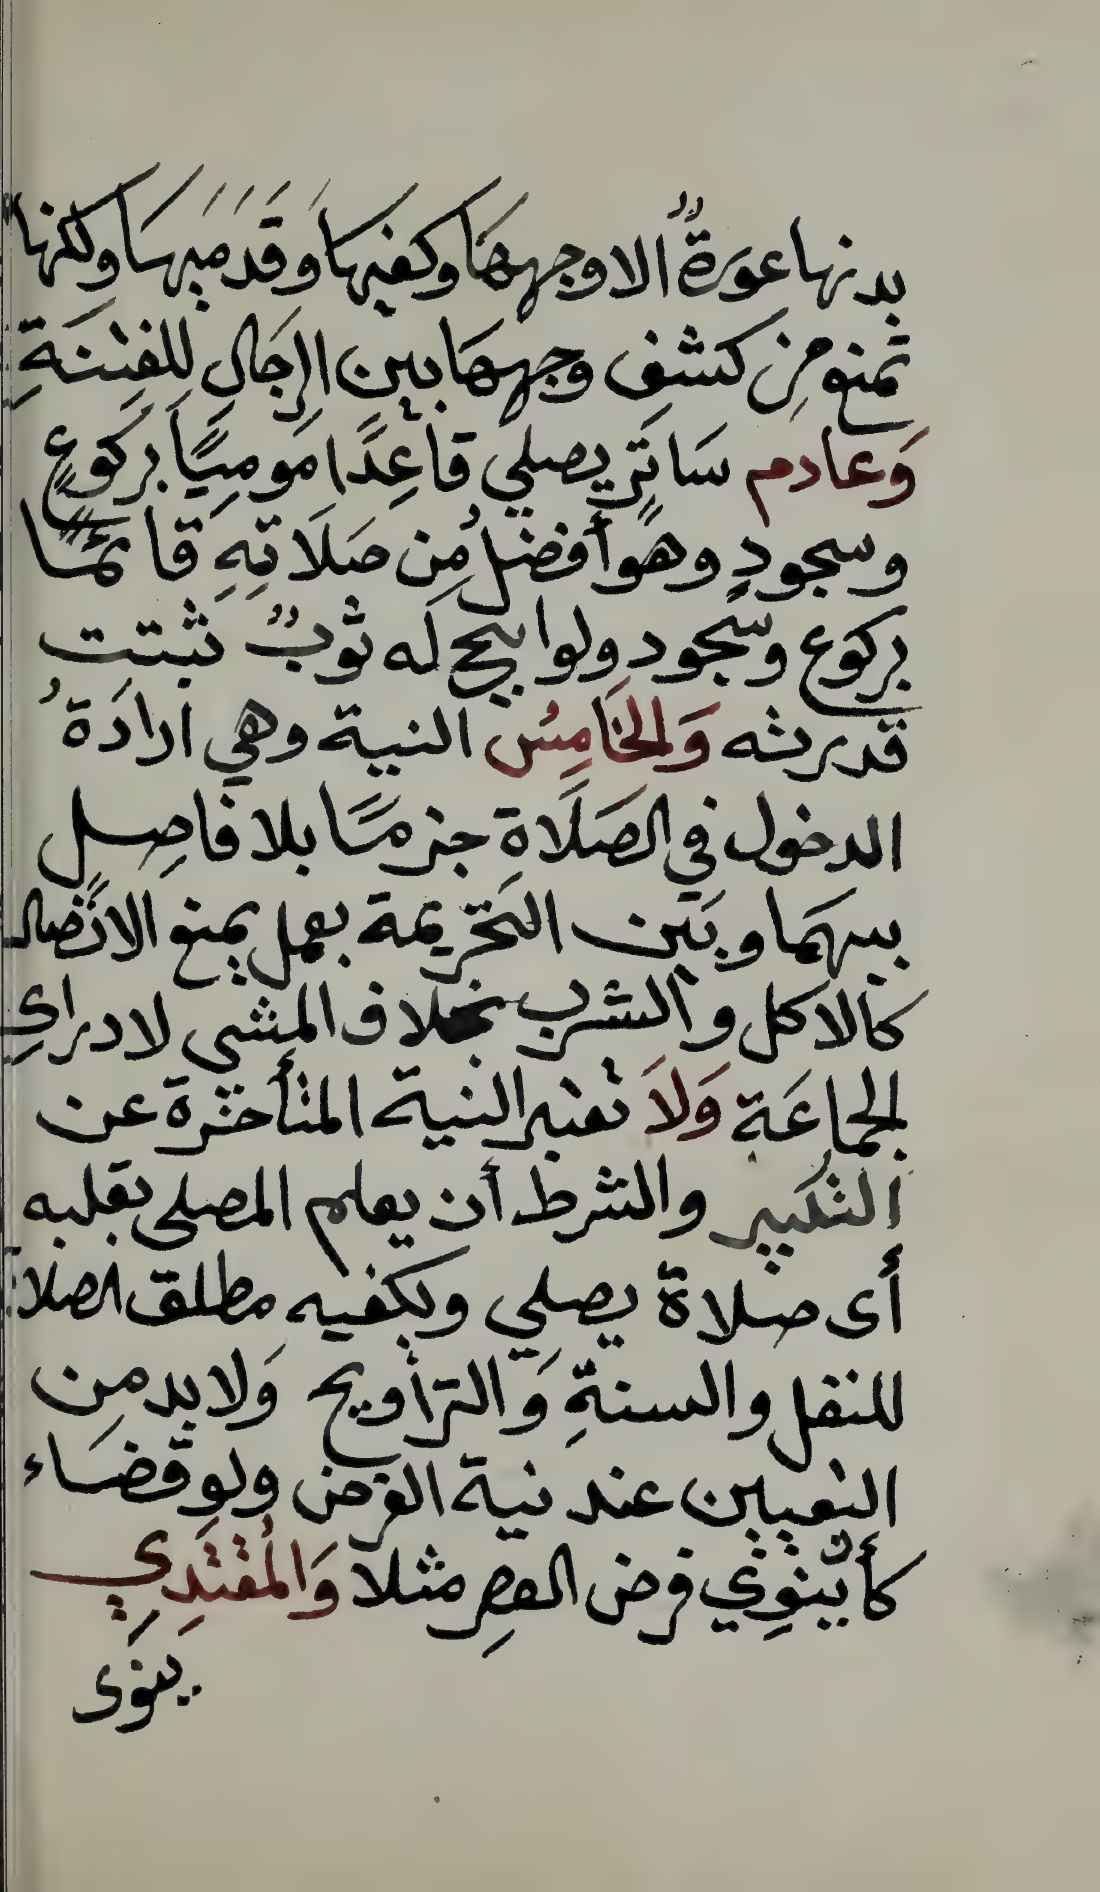 بدنها عورةٌ الا وجهها وكفيها وقدميها ولكنها
تمنع مِن كشف وجهها بين الرِجَالِ لِلفِتنَةِ
وَعادم سَاتَرٍ يصلي قاعِدًا مومِيًا بركوعٍ
وسجودٍ وهوَ أفضلُ مِن صَلَاتِهِ قائمًا
بركوع وسُجود ولو ابيح لَه ثوبٌ ثبتت
قدرته وَالخَامِسُ النية وهي ارادَةُ
الدخول في الصَلَاةِ جزمًا بلا فاصِلٍ
بينهمَا وبَين التَحريمة بعمل يمنع الاتصال
كالاكل والشرب بخلاف المشى لادراكِ
الجماعَة وَلاَ تعتبر النية المتأخرة عن
التكبير والشرط أن يعلم المصلى بقلبه
أى صلاة يصلي ويكفيه مطلق الصلاة
للنفل والسنةِ وَالتراويح وَلا بد مِن
التعيين عند نية الفرض ولو قضَاء
كأن ينوِي فرض العصرِ مثلا وَالمُقتَدِي
ينوى